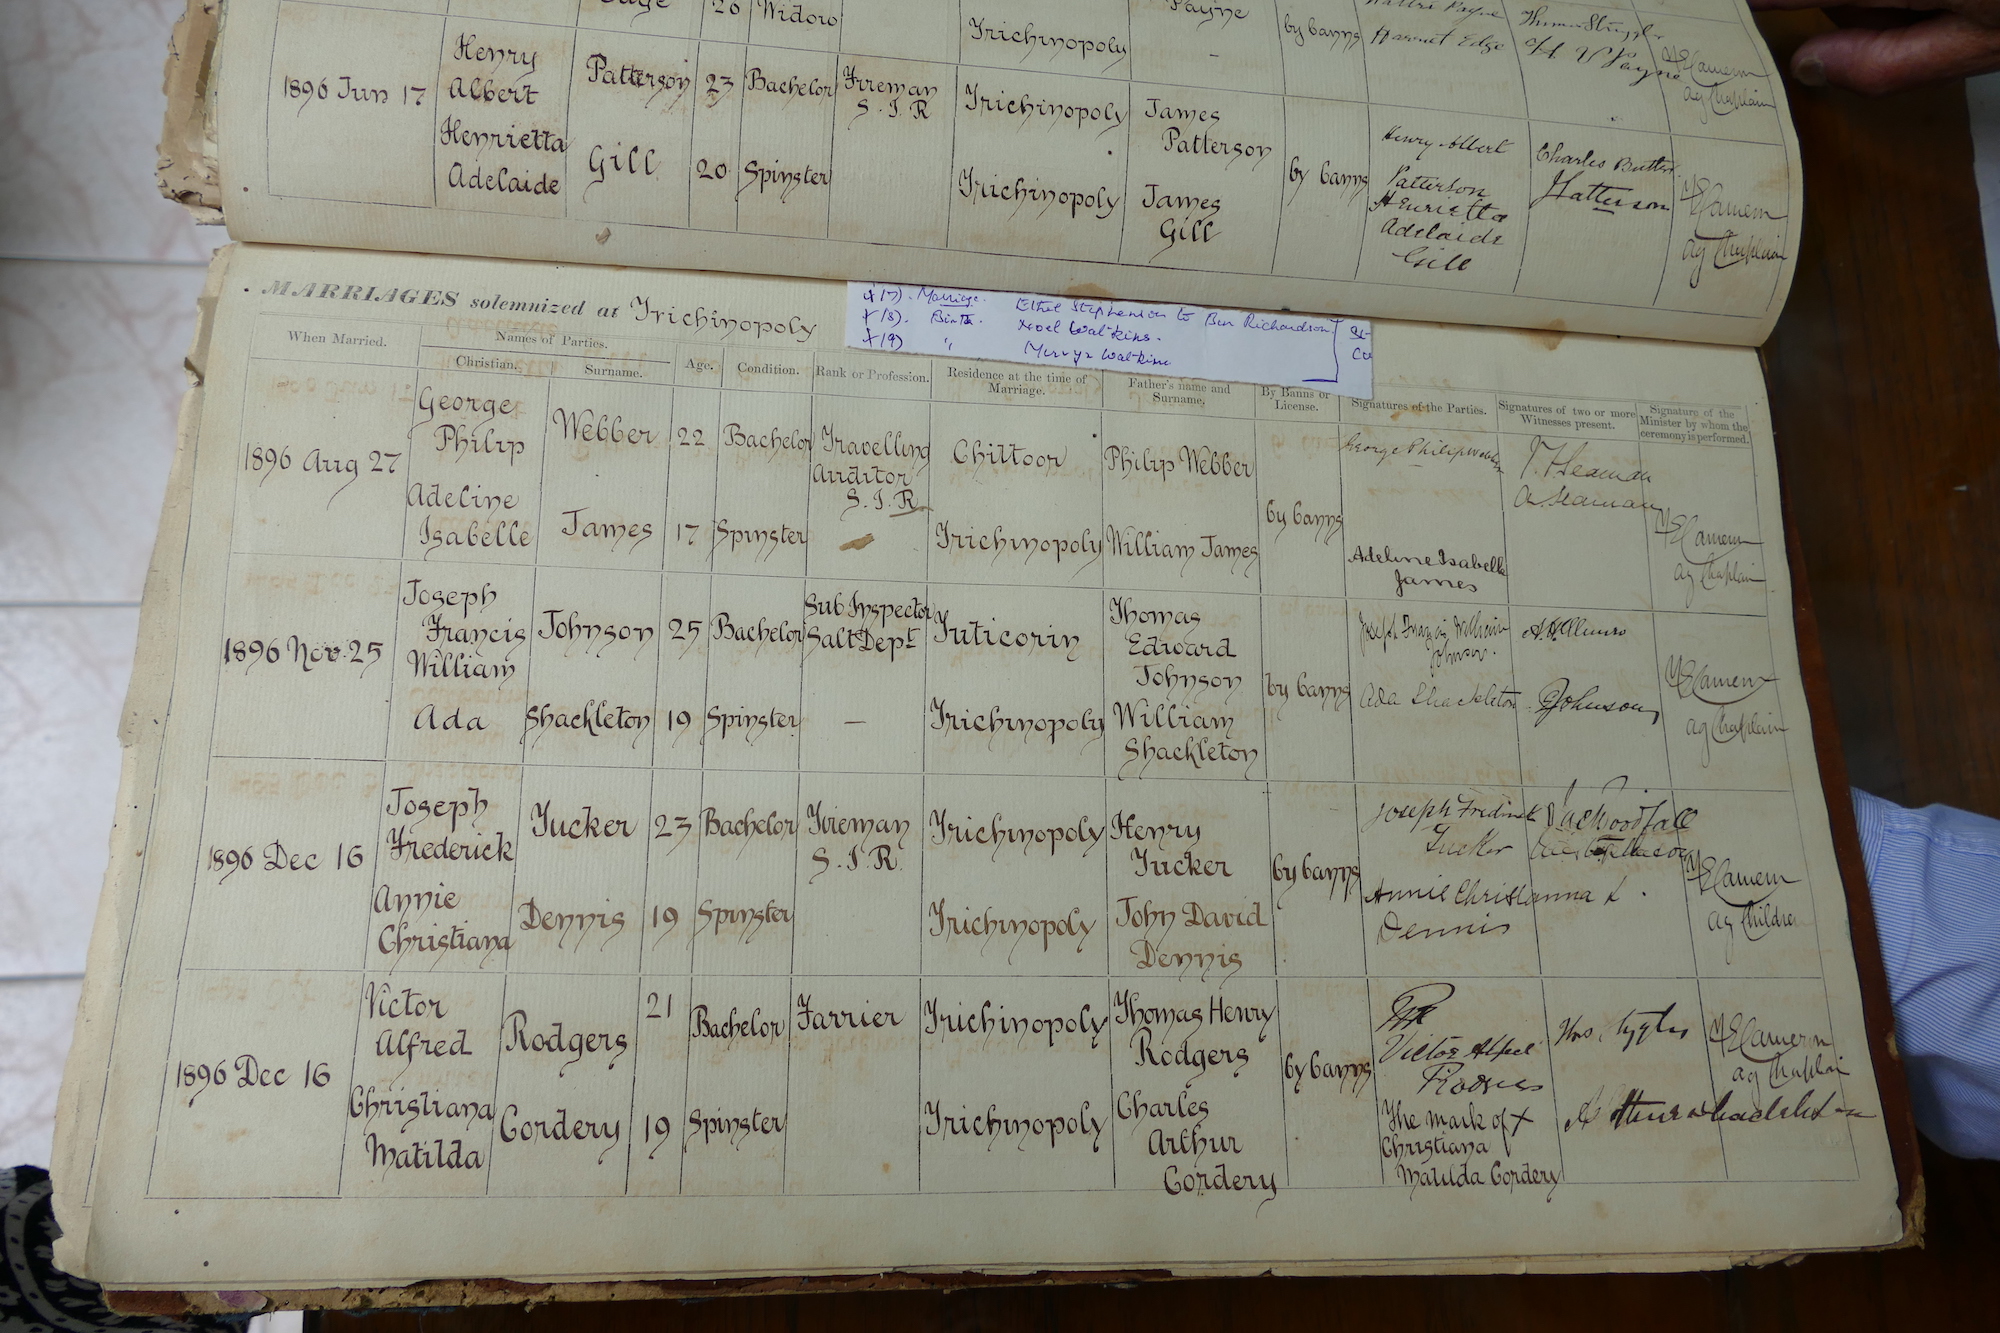 20 Widow Trichinopoly Payne by banns Harriet Edge
1896 Jun 17 Henry Albert Patterson 23 Bachelor Fireman S.I.R Trichinopoly James Patterson by banns Henry Albert Patterson Charles Butter
Henrietta Adelaide Gill 20 Spinster Trichinopoly James Gill Henrietta Adelaide Gill Patterson
ag Chaplain
MARRIAGES solemnized at Trichinopoly
17). Marriage. Ethel Stephenson to Ben Richardson
18). Birth. Noel Watkins.
19) " Mervyn Watkins
When Married. Names of Parties. Age. Condition. Rank or Profession. Residence at the time of Marriage. Father's name and Surname. By Banns or License. Signatures of the Parties. Signatures of two or more Witnesses present. Signature of the Minister by whom the ceremony is performed.
Christian. Surname.
1896 Aug 27 George Philip Webber 22 Bachelor Travelling Auditor S.I.R. Chittoor Philip Webber by banns George Philip Webber
Adeline Isabelle James 17 Spinster Trichinopoly William James Adeline Isabelle James A. Seaman
ag Chaplain
1896 Nov. 25 Joseph Francis William Johnson 25 Bachelor Sub Inspector Salt Dept Tuticorin Thomas Edward Johnson by banns Joseph Francis William Johnson.
Ada Shackleton 19 Spinster — Trichinopoly William Shackleton Ada Shackleton Johnson
ag Chaplain
1896 Dec 16 Joseph Frederick Tucker 23 Bachelor Fireman S.I.R. Trichinopoly Henry Tucker by banns Joseph Fredrick Tucker
Annie Christiana Dennis 19 Spinster Trichinopoly John David Dennis Annie Christianna Dennis
1896 Dec 16 Victor Alfred Rodgers 21 Bachelor Farrier Trichinopoly Thomas Henry Rodgers by banns Victor Alfred Rodgers
Christiana Matilda Cordery 19 Spinster Trichinopoly Charles Arthur Cordery The mark of X Christiana Matilda Cordery
ag Chaplain